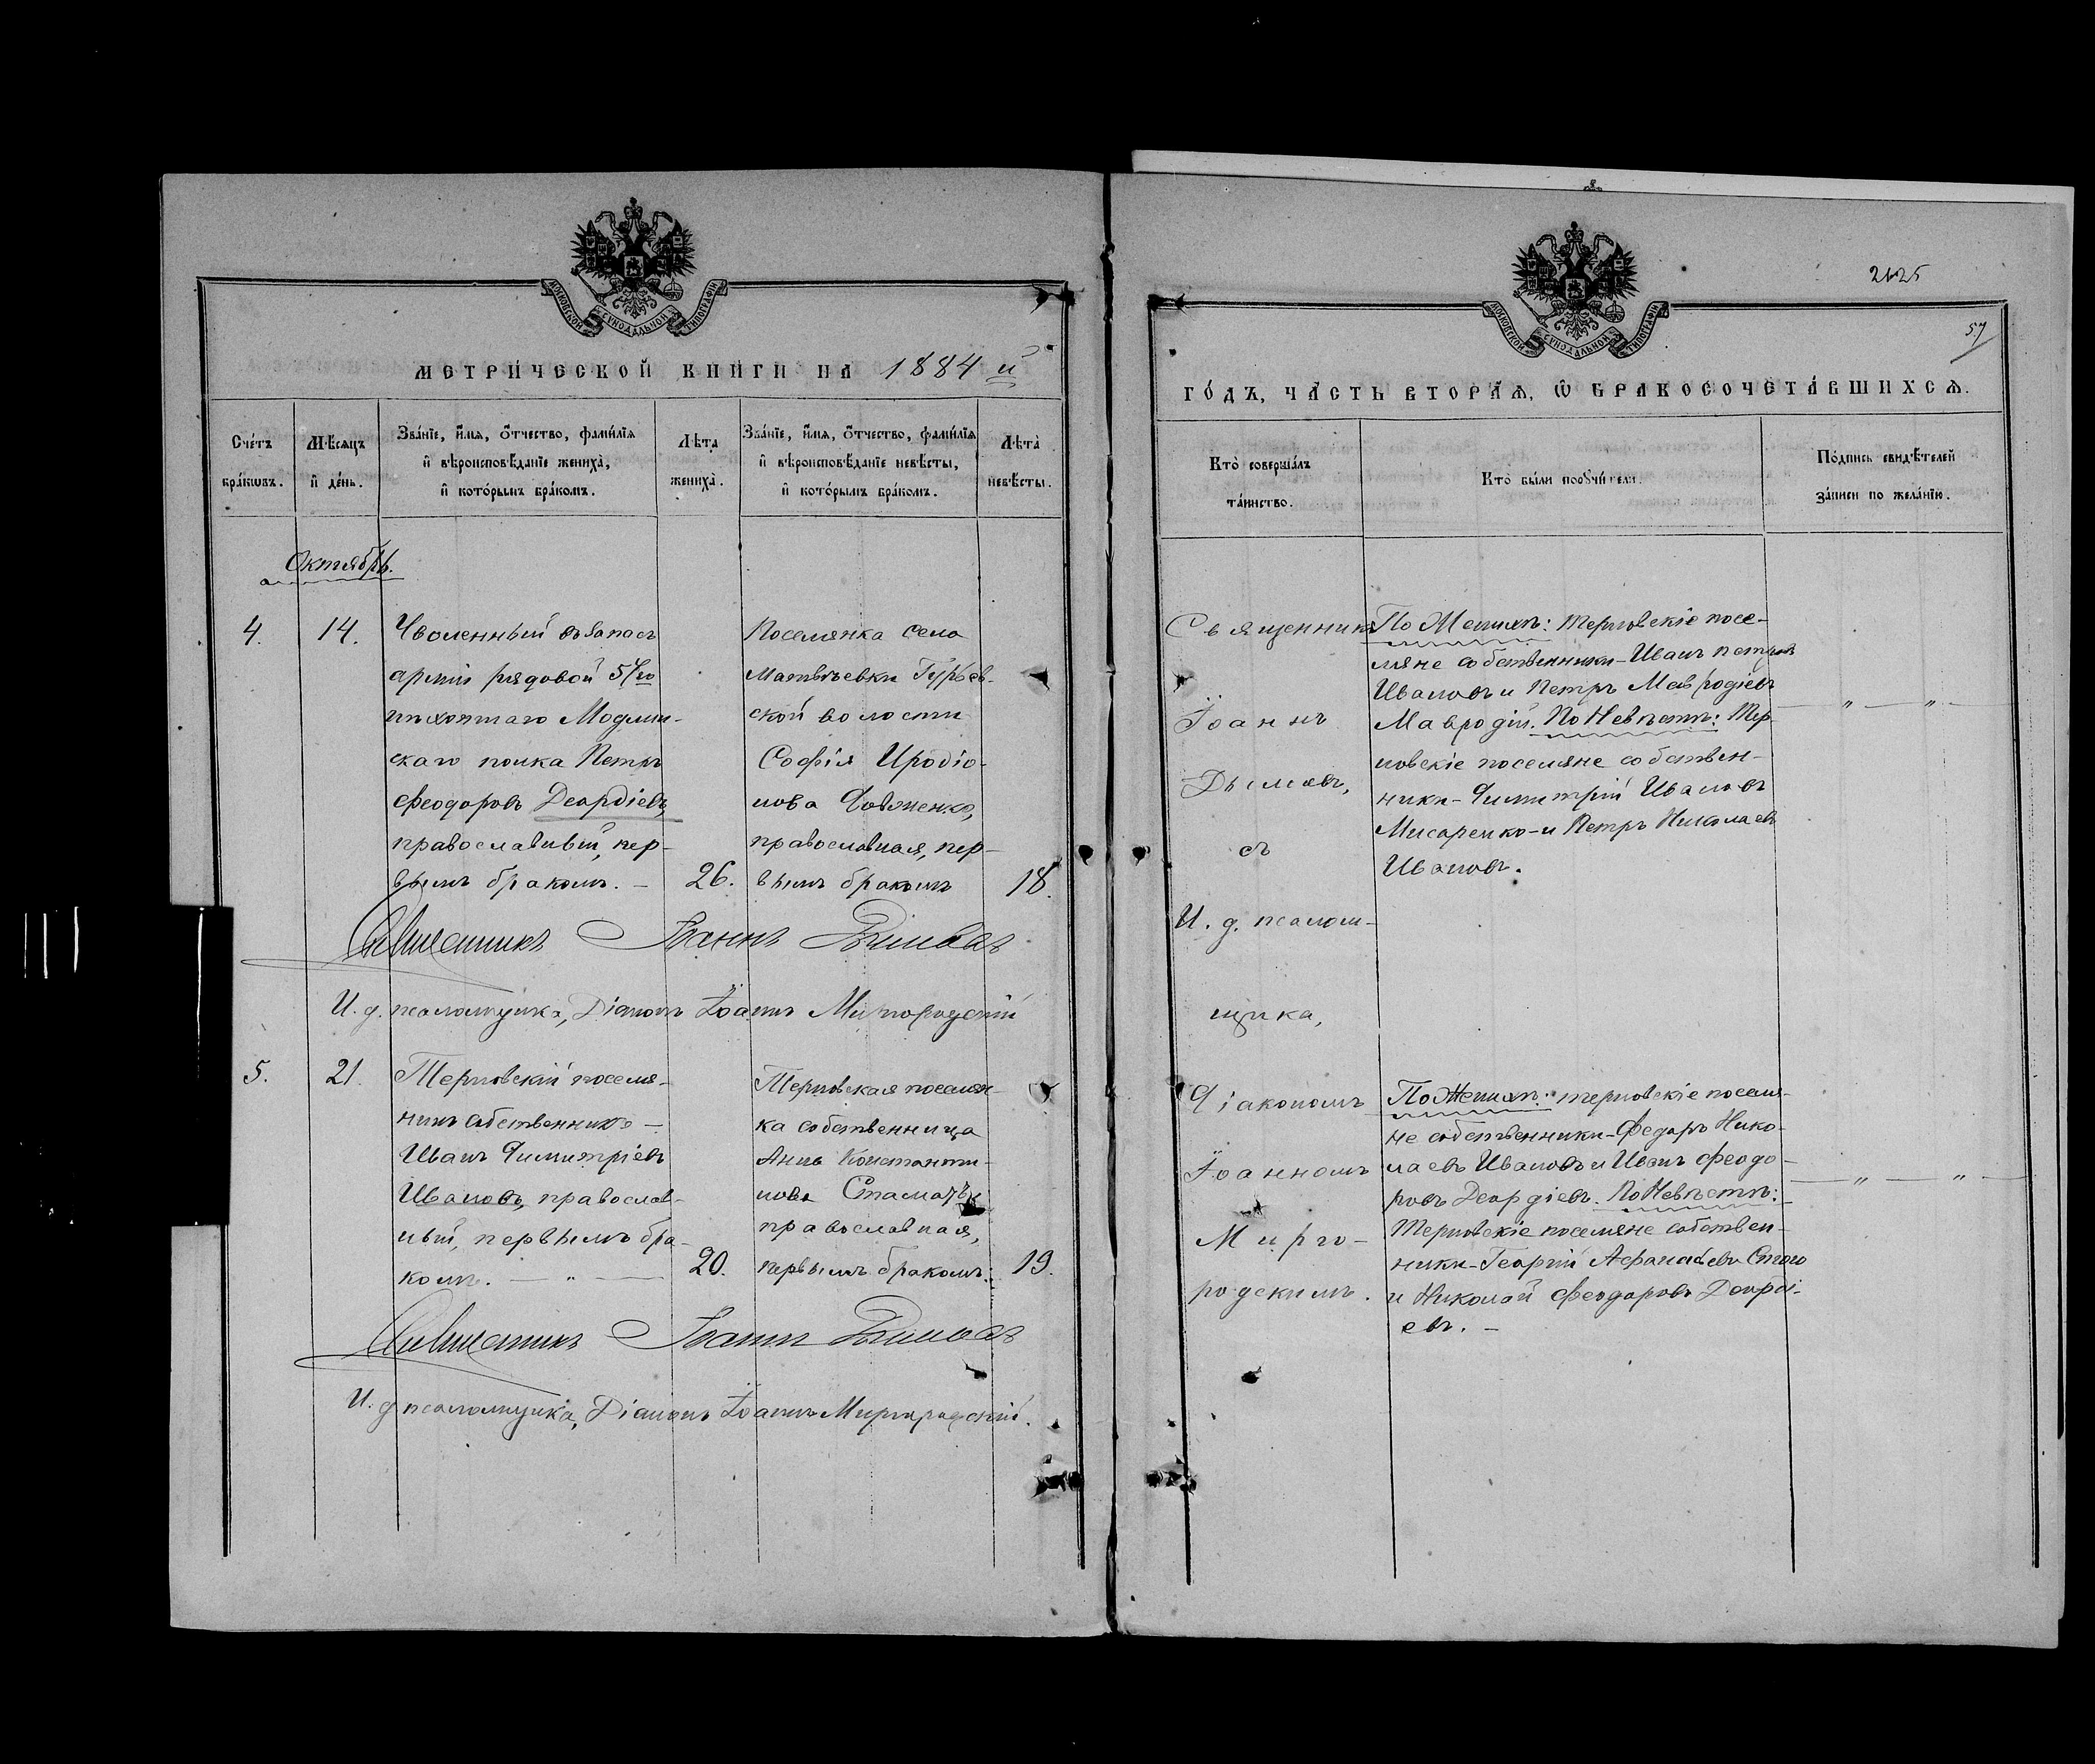 МОСКОВСКОЙ СѴНОДАЛЬНОЙ ТИПОГРАФІИ
МЕТРИ́ЧЕСКОЙ КНИ́ГИ НА 1884 й
Сче́тъ
бра́кѡвъ.
Мѣ́сяцъ
и҆ де́нь.
Зва́нїе, и҆́мѧ, ѻ҆́тчество, фами́лїѧ
и҆ вѣроисповѣ́данїе жениха̀,
и҆ кото́рымъ бра́комъ.
Лѣ́та
жениха̀.
Зва́нїе, и҆́мѧ, ѻ҆́тчество, фами́лїѧ
и҆ вѣроисповѣ́данїе невѣ́сты,
и҆ кото́рымъ бра́комъ.
Лѣ́та
невѣ́сты.
Октябрь.
4.
14.
Уволенный въ запасъ
арміи рядовой 57го
пѣхотнаго Модлин-
скаго полка Петръ
Феодоровъ Деордіевъ,
православный, пер-
вымъ бракомъ. –
26.
Поселянка села
Матвѣевки Гурьев-
ской волости
Софія Иродіо-
нова
православная, пер-
вымъ бракомъ
18.
Священникъ Іоаннъ Дымовъ
И. д. псаломщика, Діаконъ Іоаннъ Миргородскій
5.
21.
Терновскій поселя-
нинъ собственникъ –
Иванъ Димитріевъ
Ивановъ, православ-
ный, первымъ бра-
комъ. — „ —
20.
Терновская поселян-
ка собственница
Анна Константи-
нова
православная,
первымъ бракомъ.
19.
Священникъ Іоаннъ Дымовъ
И. д. псаломщика, Діаконъ Іоаннъ Миргородскій.
МОСКОВСКОЙ СѴНОДАЛЬНОЙ ТИПОГРАФІИ
2125
57
ГО́ДЪ, ЧА́СТЬ ВТОРА́Ѧ, Ѡ҆ БРАКОСОЧЕТА́ВШИХСѦ.
Кто̀ соверша́лъ
та́инство.
Кто̀ бы́ли порꙋчи́тели.
По́дпись свидѣ́телей
за́писи по жела́нїю.
Священникъ
Іоаннъ
Дымовъ,
съ
И. д. псалом-
щика,
Діакономъ
Іоанномъ
Мирго-
родскимъ.
По Женихѣ: терновскіе посе-
ляне собственники – Иванъ Петровъ
Ивановъ и Петръ Мавродіевъ
Мавродій. По Невѣстѣ: Тер-
новскіе поселяне собствен-
ники – Димитрій Ивановъ
Писаренко – и Петръ Николаевъ
Ивановъ.
— „ — „ —
По Женихѣ: терновскіе поселя-
не собственники – Федоръ Нико-
лаевъ Ивановъ и Иванъ Феодо-
ровъ Деордіевъ. По Невѣстѣ: –
Терновскіе поселяне собствен-
ники – Георгій Афанасьевъ
и Николай Феодоровъ Деорді-
евъ. –
— „ — „ —